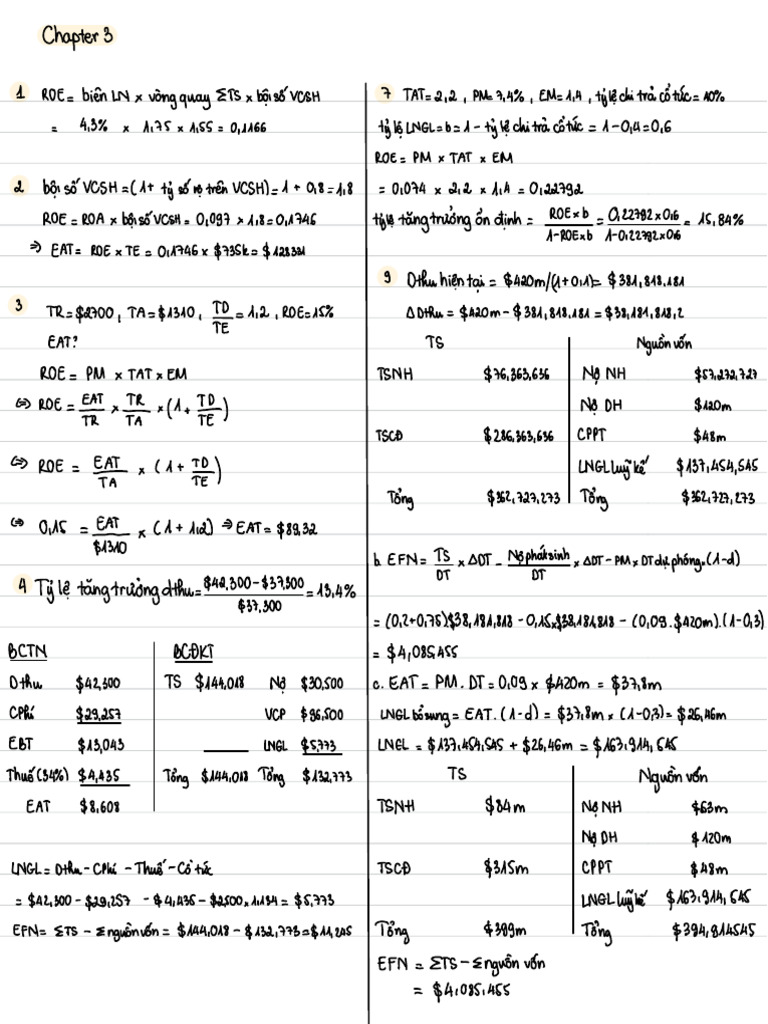 Chapter 3
1 ROE = biên LN x vòng quay ΣTS x bội số VCSH
= 4,3% x 1,75 x 1,55 = 0,1166
2 bội số VCSH = (1 + tỷ số nợ trên VCSH) = 1 + 0,8 = 1,8
ROE = ROA x bội số VCSH = 0,097 x 1,8 = 0,1746
⇒ EAT = ROE x TE = 0,1746 x $735k = $128331
3 TR = $2700, TA = $1310, TD/TE = 1,2, ROE = 15%
EAT?
ROE = PM x TAT x EM
⇔ ROE = EAT/TR x TR/TA x (1 + TD/TE)
⇔ ROE = EAT/TA x (1 + TD/TE)
⇔ 0,15 = EAT/$1310 x (1 + 1,2) ⇒ EAT = $89,32
4 Tỷ lệ tăng trưởng dthu = $42,300 - $37,300/$37,300 = 13,4%
BCTN BCĐKT
Dthu $42,300 TS $144,018 Nợ $30,500
CPhí $29,257 VCP $96,500
EBT $13,043 LNGL $5,773
Thuế (34%) $4,435 Tổng $144,018 Tổng $132,773
EAT $8,608
LNGL = Dthu - CPhí - Thuế - Cổ tức
= $42,300 - $29,257 - $4,435 - $2500 x 1,134 = $5,773
EFN = ΣTS - Σnguồn vốn = $144,018 - $132,773 = $11,245
7 TAT = 2,2, PM = 7,4%, EM = 1,4, tỷ lệ chi trả cổ tức = 40%
tỷ lệ LNGL = b = 1 - tỷ lệ chi trả cổ tức = 1 - 0,4 = 0,6
ROE = PM x TAT x EM
= 0,074 x 2,2 x 1,4 = 0,22792
tỷ lệ tăng trưởng ổn định = ROE x b/1 - ROE x b = 0,22792 x 0,6/1 - 0,22792 x 0,6 = 15,84%
9 Dthu hiện tại = $420m/(1 + 0,1) = $381,818.181
ΔDthu = $420m - $381,818.181 = $38,181,818,2
TS Nguồn vốn
TSNH $76,363,636 Nợ NH $57,272,727
Nợ DH $120m
TSCĐ $286,363,636 CPPT $48m
LNGL luỹ kế $137,454,545
Tổng $362,727,273 Tổng $362,727,273
b. EFN = TS/DT x ΔDT - Nợ phát sinh/DT x ΔDT - PM x DT dự phóng.(1-d)
= (0,2+0,75)$38,181,818 - 0,15x$38,181,818 - (0,09.$420m).(1-0,3)
= $4,085,455
c. EAT = PM.DT = 0,09 x $420m = $37,8m
LNGL bổ sung = EAT.(1-d) = $37,8m x (1-0,3) = $26,46m
LNGL = $137,454,545 + $26,46m = $163,914,545
TS Nguồn vốn
TSNH $84m Nợ NH $63m
Nợ DH $120m
TSCĐ $315m CPPT $48m
LNGL luỹ kế $163,914,545
Tổng $399m Tổng $394,914545
EFN = ΣTS - Σnguồn vốn
= $4,085,455